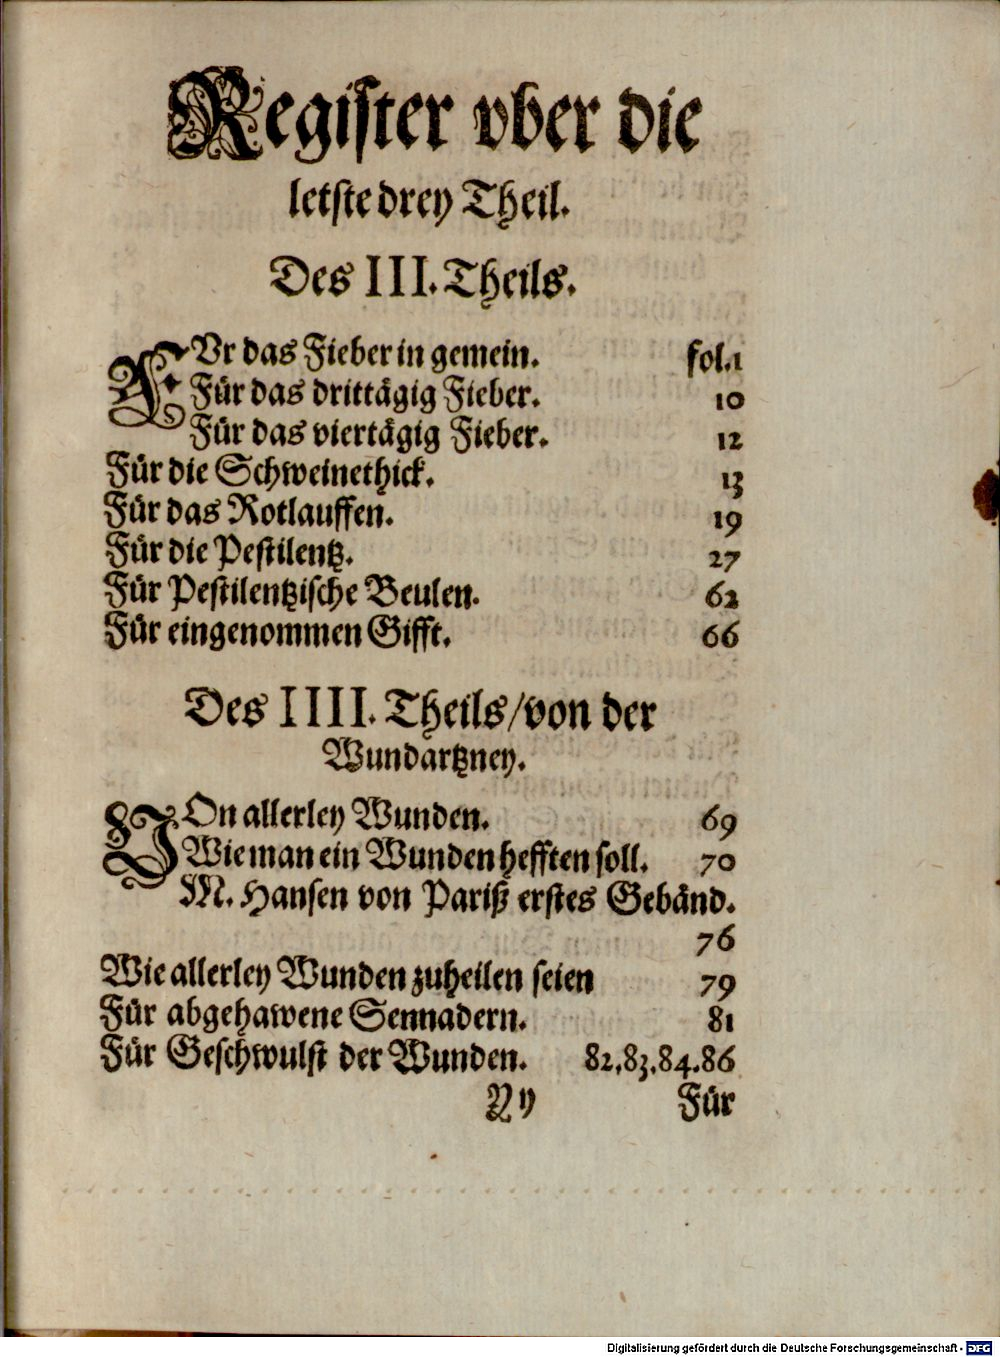 Register vber die
letste drey Theil.
Des III. Theils.
FVr das Fieber in gemein. fol.1
Für das drittägig Fieber. 10
Für das viertägig Fieber. 12
Für die Schweinethick. 13
Für das Rotlauffen. 19
Für die Pestilentz. 27
Für Pestilentzische Beulen. 62
Für eingenommen Gifft. 66
Des IIII. Theils/von der
Wundartzney.
VOn allerley Wunden. 69
Wie man ein Wunden hefften soll. 70
M. Hansen von Pariß erstes Gebänd.
76
Wie allerley Wunden zuheilen seien 79
Für abgehawene Sennadern. 81
Für Geschwulst der Wunden. 82.83.84.86
Y y Für
Digitalisierung gefördert durch die Deutsche Forschungsgemeinschaft - DFG